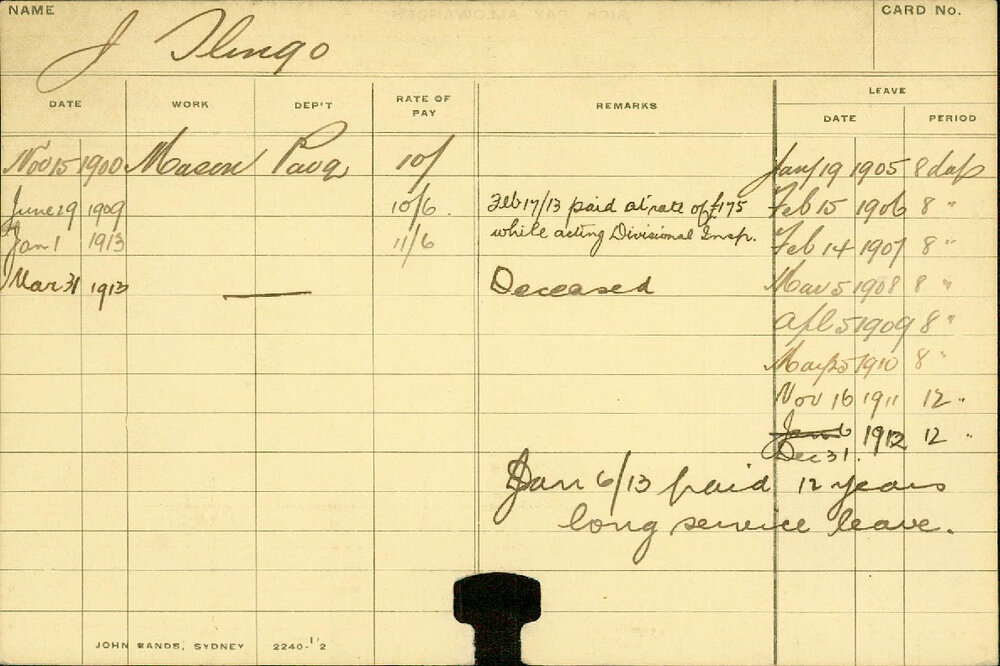 NAME CARD No.
J Ilingo
DATE WORK DEP'T RATE OF PAY REMARKS LEAVE
DATE PERIOD
Nov 15 1900 Mason 10/ Jan 19 1905 8 days
June 29 1909 10/6 Feb 17/13 paid at rate of £175 Feb 15 1906 8 "
Jan 1 1913 11/6 while acting Divisional Insp. Feb 14 1907 8 "
Mar 31 1913 — Deceased Mar 5 1908 8 "
Apl 5 1909 8 "
May 25 1910 8 "
Nov 16 1911 12 "
Jan 6 1912 12 "
Dec 31.
Jan 6/13 paid 12 years
long service leave.
JOHN SANDS, SYDNEY 2240-1'2